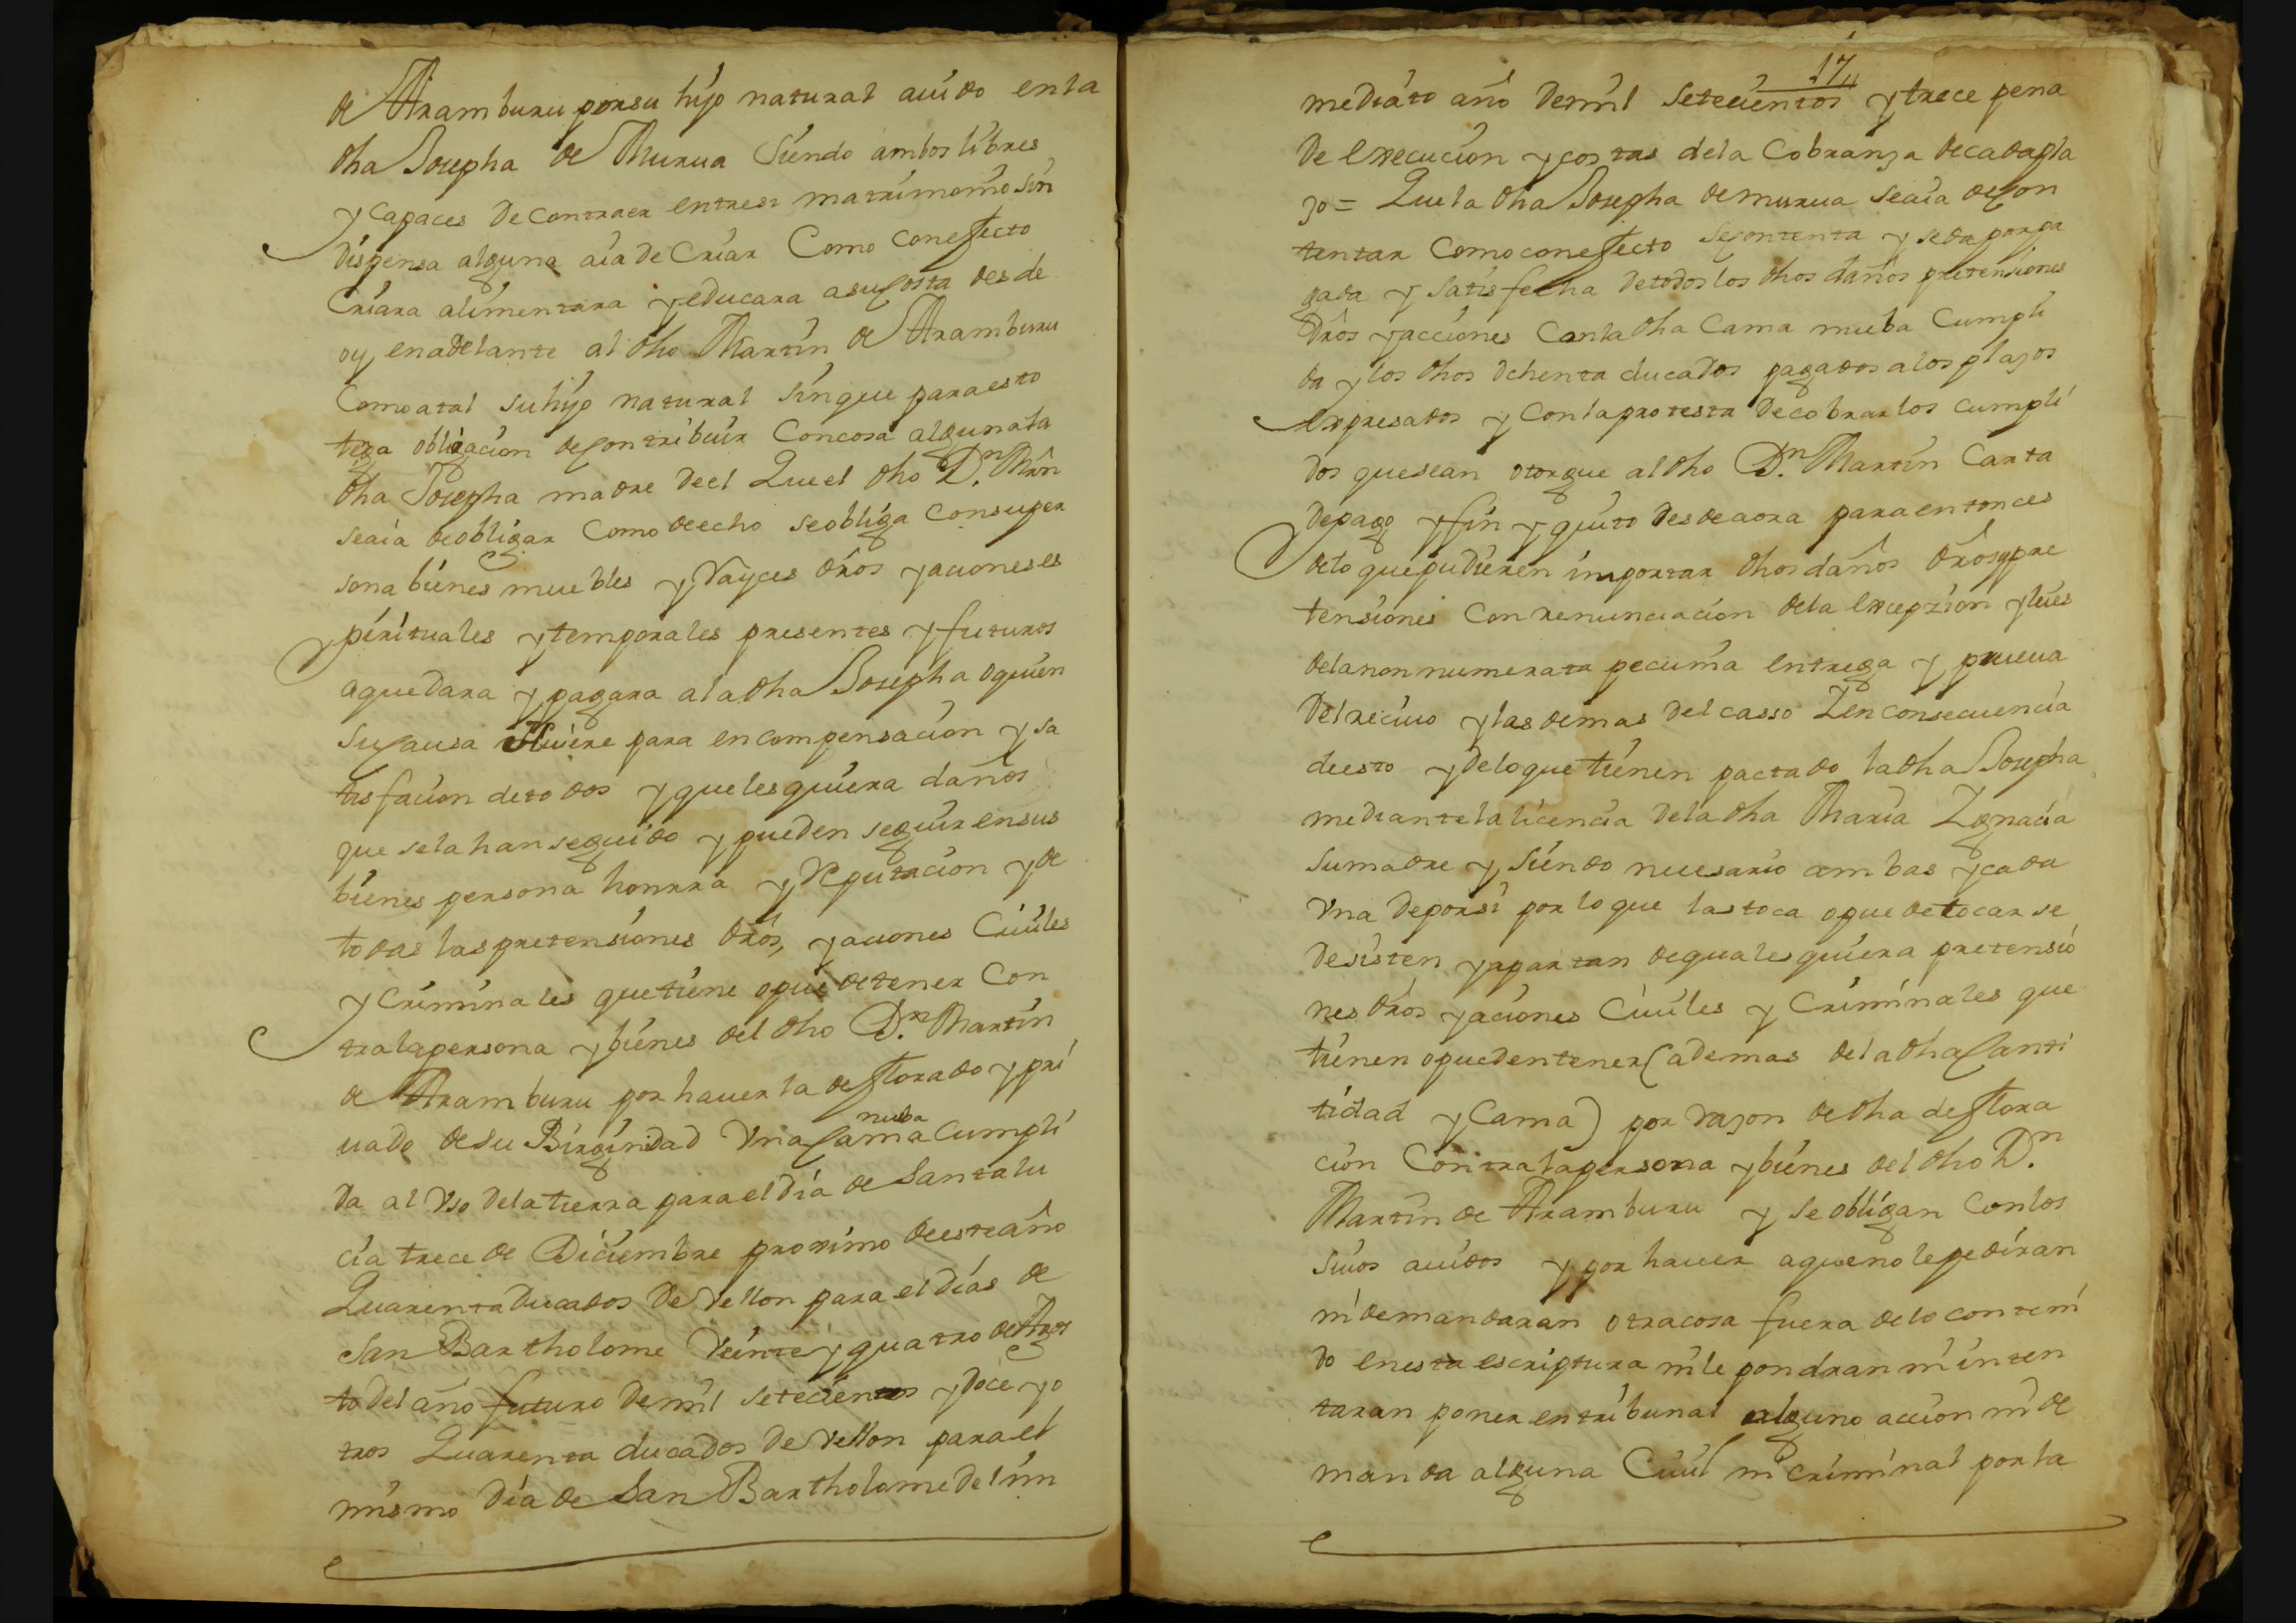 de Aramburu por su hijo natural auido en la
dha Josepha de Murua siendo ambos libres
y capaces de contraer entresi matrimonio sin
dispensa alguna aia de Criar Como con effecto
Criara alimentara y educara a su costa desde
oy en adelante al dho Martin de Aramburu
Como atal su hijo natural sin que para esto
tega obligacion de contribuir Con cosa alguna la
dha Josepha madre de el Que el dho Dn. Mrn
se aia de obligar Como de echo se obliga Con su per
sona bienes muebles y Rayces dros y aciones es
pirituales y temporales presentes y futuros
a que dara y pagara a la dha Josepha o quien
su causa huuiere para en compensacion y sa
tisfacion de todos y quelesquiera daños
que se la han seguido y pueden seguir en sus
bienes persona honrra y Reputacion y de
todas las pretensiones dros, y aciones Ciuiles
y Criminales que tiene o puede tener Con
tra la persona y bienes del dho Dn. Martin
de Aramburu por hauerla desflorado y pri
uado de su Birginidad Vna Cama nueba Cumpli
da al Vso de la tierra para el dia de Santa lu
cia trece de Diciembre proximo de este año
Quarenta Ducados de vellon para el dias de
San Bartholome Veinte y quatro de Agos
to del año futuro de mil setecientos y doce y o
tros Quarenta ducados de vellon para el
mismo dia de San Bartholome del in
17
mediato año de mil setecientos y trece pena
de execucion y costas de la Cobranza de cada pla
zo = Que la dha Josepha de murua se aia de con
tentar Como con effecto se contenta y se da por pa
gada y satisfecha de todos los dhos daños pretensiones
dros y acciones Con la dha Cama nueba Cumpli
da y los dhos ochenta ducados pagados a los plazos
expresados y Con la protesta de cobrarlos cumpli
dos que sean otorgue al dho Dn. Martin Carta
de pago y fin y quito desde aora para entonces
de lo que pudieren importar dhos daños dros y pre
tensiones Con renunciacion de la excepzion y leies
de la non numerata pecunia entrega y prueua
del reciuo y las demas del casso Y en consecuencia
de esto y de lo que tienen pactado la dha Josepha
mediante la licencia de la dha Maria Ygnacia
su madre y siendo necesario ambas y cada
vna de por si por lo que las toca o puede tocar se
desisten y apartan de quales quiera pretensio
nes dros y aciones Ciuiles y Criminales que
tienen o pueden tener (ademas de la dha Canti
tidad y Cama) por razon de dha deflora
cion Contra la persona y bienes del dho Dn.
Martin de Aramburu y se obligan Con los
suios auidos y por hauer a que no le pediran
ni demandaran otra cosa fuera de lo conteni
do en esta escriptura ni le pondran ni inten
taran poner en tribunal alguno accion ni de
manda alguna Ciuil ni criminal por la